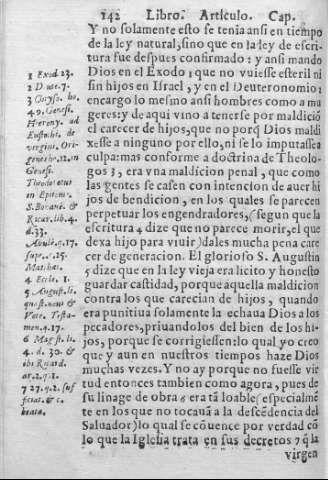 142 Libro. Artículo. Cap.
Y no solamente esto se tenia ansi en tiempo
de la ley natural, sino que en la ley de escri-
tura fue despues confirmado: y ansi mando
Dios en el Exodo 1 que no vuiesse esteril ni
sin hijos en Israel, y en el Deuteronomio 2
encargo lo mesmo ansi hombres como a mu
geres: y de aqui vino a tenerse por maldició
el carecer de hijos, que no porq̃ Dios maldi
xesse a ninguno por ello, ni se lo imputasse a
culpa: mas conforme a doctrina de Theolo-
gos 3, era vna maldicion penal, que como
las gentes se casen con intencion de auer hi
jos de bendicion, en los quales se parecen
perpetuar los engendradores, (segun que la
escritura 4 dize que no parece morir, el que
dexa hijo para viuir) dales mucha pena care
cer de generacion. El glorioso S. Augustin
5 dize que en la ley vieja era licito y honesto
guardar castidad, porque aquella maldicion
contra los que carecian de hijos, quando
era punitiua solamente la echaua Dios a los
pecadores, priuandolos del bien de los hi-
jos, porque se corrigiessen: lo qual yo creo
que y aun en nuestros tiempos haze Dios
muchas vezes. Y no ay porque no fuesse vir
tud entonces tambien como agora, pues de
su linage de obra 6 era tã loable (especialmẽ
te en los que no tocauã a la descẽdencia del
Saluador) lo qual se cõuence por verdad cõ
lo que la Iglesia trata en sus decretos 7 q̃ la
virgen
1 Exod 23.
2 Deut. 7.
3 Chryso. ho.
49. Genesi.
Hierony. ad
Eustochi. de
virgini. Ori-
gene ho. 12. in
Genesi.
Theodoretus
in
S. &
Ricar. lib. 4.
d. 33.
Abulẽ. q. 17.
sup. c. 25.
Matthæi.
4 Eccle. 1.
5 August. li.
&
Vete. Testa-
men. q. 17.
6 Magist. li.
4. d. 30. &
ibi Ricard.
ar. 2. q. 1.
7 27. q. 2. suf
ficiat. & c.
beata.